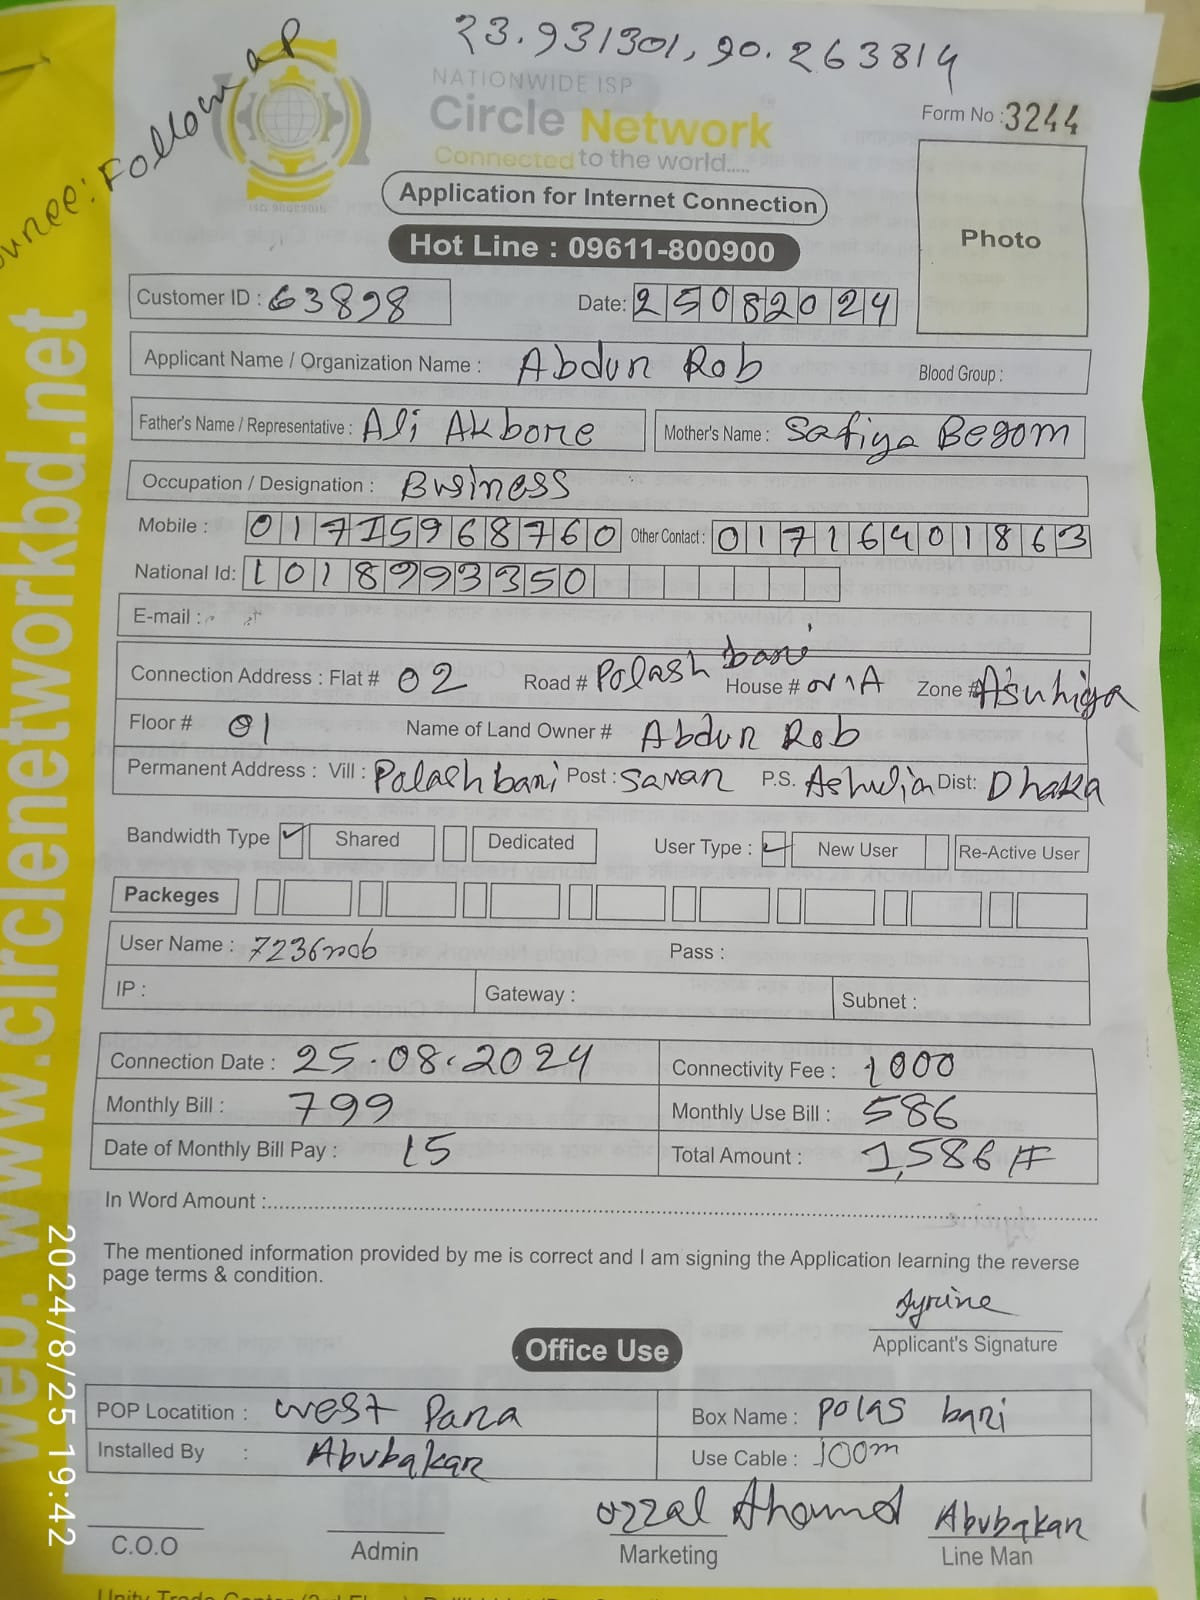 23.931301, 90.263814
Follow up
NATIONWIDE ISP
Circle Network
Connected to the world.....
Form No : 3244
Application for Internet Connection
Photo
Hot Line : 09611-800900
Customer ID : 63898
Date: 25082024
Applicant Name / Organization Name : Abdur Rob
Blood Group :
Father's Name / Representative : Ali Akbore
Mother's Name : Safiya Begom
Occupation / Designation : Business
Mobile : 01715968760 Other Contact : 01716401863
National Id: 1018993350
E-mail :
Connection Address : Flat # 02 Road # Polash bari House # N/A Zone # Asuhiya
Floor # 01 Name of Land Owner # Abdur Rob
Permanent Address : Vill : Palash bari Post : Savar P.S. Ashulia Dist: Dhaka
Bandwidth Type ✓ Shared Dedicated User Type : ✓ New User Re-Active User
Packeges
User Name : 7236rob Pass :
IP : Gateway : Subnet :
Connection Date : 25.08.2024 Connectivity Fee : 1000
Monthly Bill : 799 Monthly Use Bill : 586
Date of Monthly Bill Pay : 15 Total Amount : 1,586/=
In Word Amount :
The mentioned information provided by me is correct and I am signing the Application learning the reverse
page terms & condition.
Applicant's Signature
Office Use
POP Locatition : West Para Box Name : Polas bari
Installed By : Abubakar Use Cable : 100m
Ozzal Ahamed Abubakar
C.O.O Admin Marketing Line Man
web: www.circlenetworkbd.net
2024/8/25 19:42